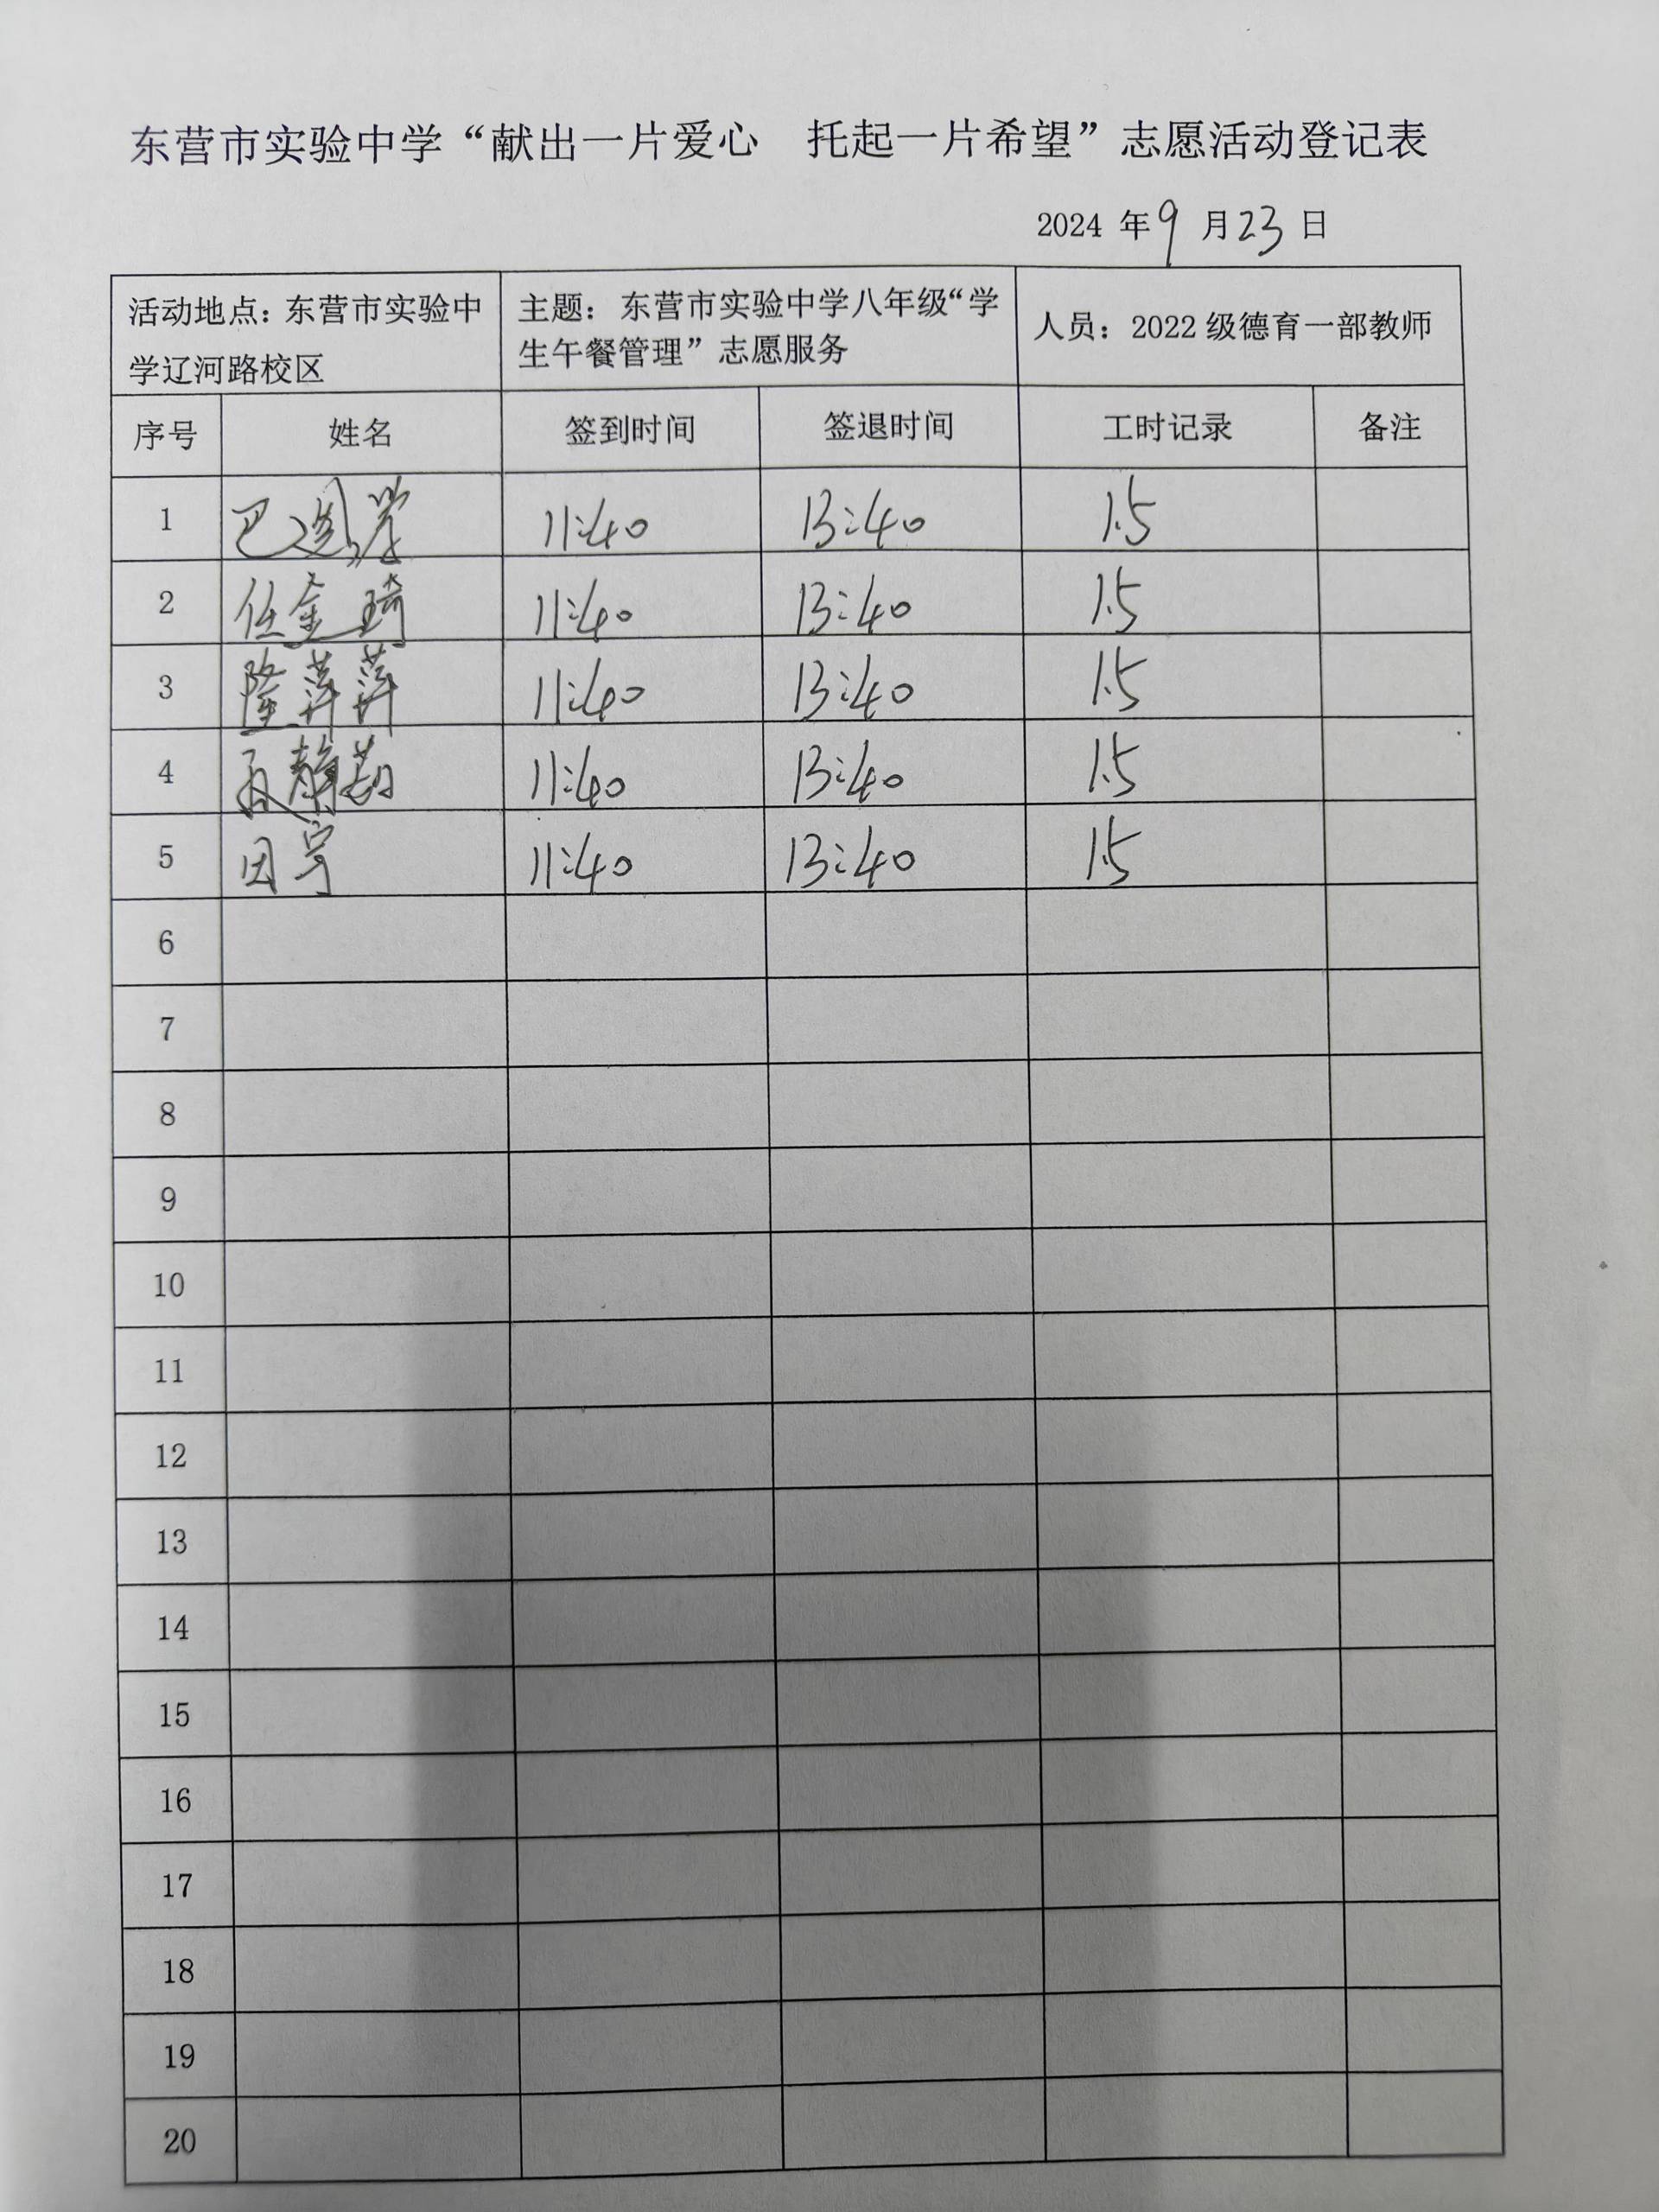 东营市实验中学“献出一片爱心 托起一片希望”志愿活动登记表
2024 年 9 月 23 日
活动地点：东营市实验中
学辽河路校区
主题：东营市实验中学八年级“学
生午餐管理”志愿服务
人员：2022 级德育一部教师
序号 姓名 签到时间 签退时间 工时记录 备注
1 巴 11:40 13:40 1.5
2 任金琦 11:40 13:40 1.5
3 隆萍萍 11:40 13:40 1.5
4 静茹 11:40 13:40 1.5
5 田宇 11:40 13:40 1.5
6
7
8
9
10
11
12
13
14
15
16
17
18
19
20